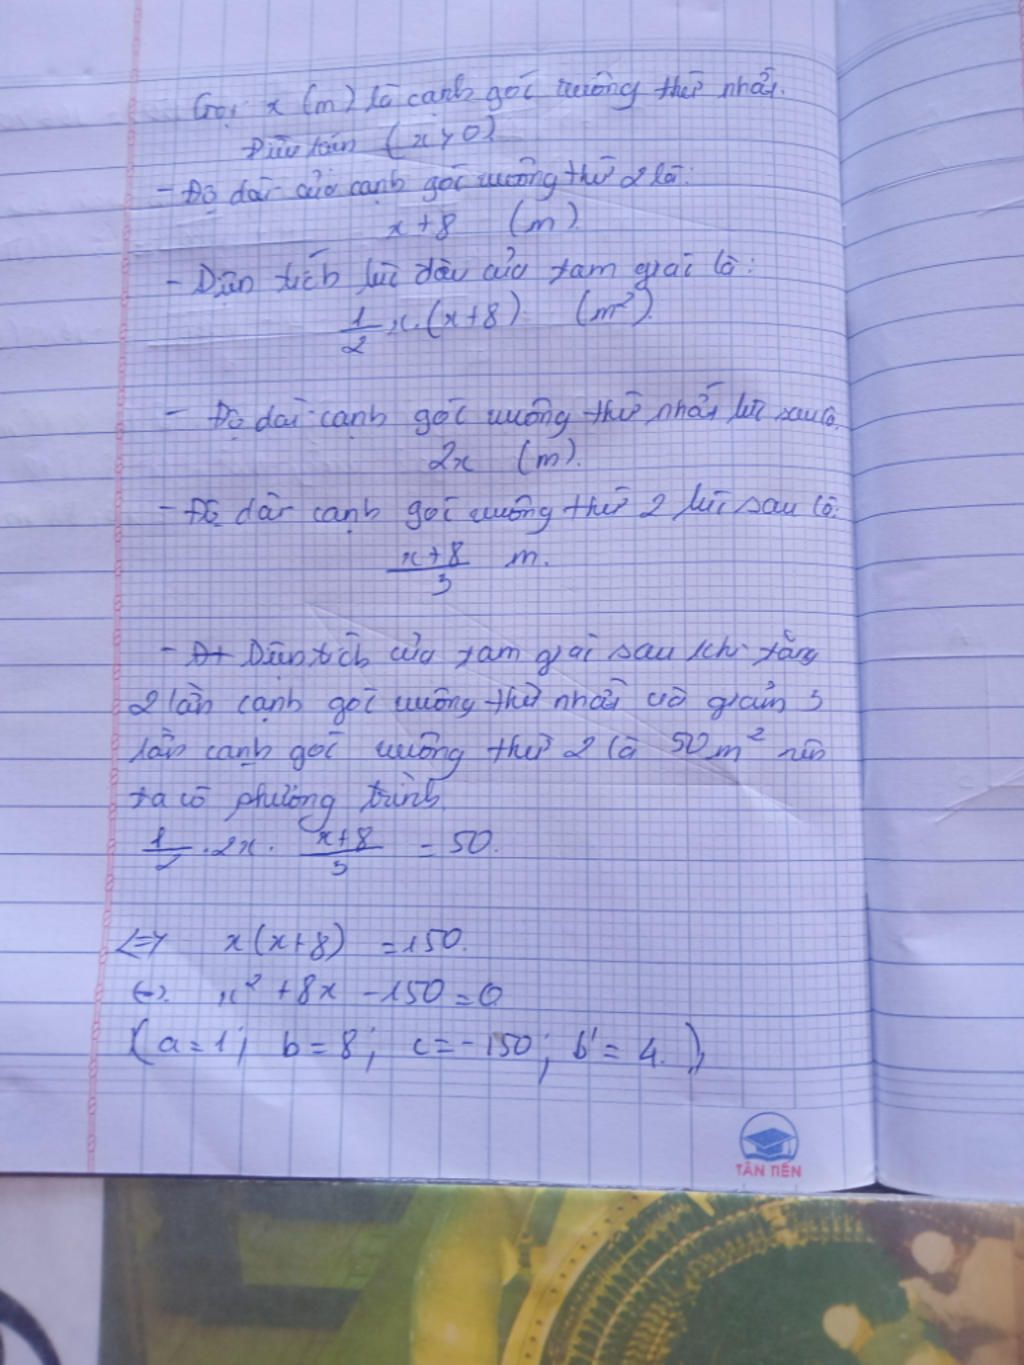 Gọi x (m) là cạnh góc vuông thứ nhất.
Điều kiện (x > 0)
- Độ dài của cạnh góc vuông thứ 2 là:
x + 8 (m)
- Diện tích lúc đầu của tam giác là:
1/2 x.(x+8) (m²).
- Độ dài cạnh góc vuông thứ nhất lúc sau là.
2x (m).
- Độ dài cạnh góc vuông thứ 2 lúc sau là:
(x+8)/3 m.
- Diện tích của tam giác sau khi tăng
2 lần cạnh góc vuông thứ nhất và giảm 3
lần cạnh góc vuông thứ 2 là 50 m² nên
ta có phương trình
1/2 . 2x . (x+8)/3 = 50.
<=> x(x+8) = 150.
<=> x² + 8x - 150 = 0
(a = 1; b = 8; c = -150; b' = 4.)
TÂN TIẾN